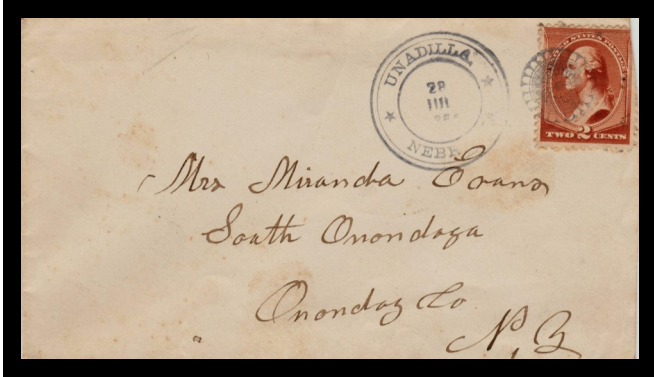 UNADILLA,
28
JUL
NEBR.
UNITED STATES POSTAGE
TWO 2 CENTS
Mrs Miranda Evans
South Onondaga
Onondag Co
N. Y